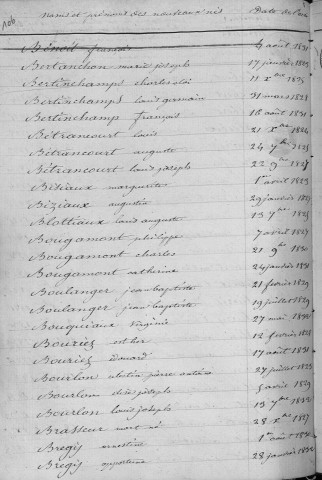 106
noms et prénoms des nouveaux nés Date de
Benoit françois 4 août 1831
Bertanchon marie joseph 17 janvier 1829
Bertinchamps charles éloi 11 Xbre 1825
Bertinchamps louis germain 31 mars 1828
Bertinchamps françois 18 août 1831
Bétrancourt louis 21 Xbre 1824
Bétrancourt auguste 24 7bre
Bétrancourt louis joseph 22 9bre 1828
Béziaux marguerite 1er avril 1823
Béziaux augustin 29 janvier 1827
Blottiaux louis auguste 13 7bre
Bougamont philippe 7 avril 1827
Bougamont charles 21 9bre 1830
Bougamont catherine 24 janvier
Boulanger jean baptiste 21 février 1829
Boulanger jean baptiste 19 juillet
Bouquiaux virginie 27 mai
Bouriez esther 12 février 1828
Bouriez édouard 17 août 1831
Bourlon pierre antoine 27 juillet 1823
Bourlon joseph 5 avril 1829
Bourlon louis joseph 13 7bre
Brasseur mort né 28 Xbre 1827
Brégis ernestine 1er août
Brégis 28 janvier